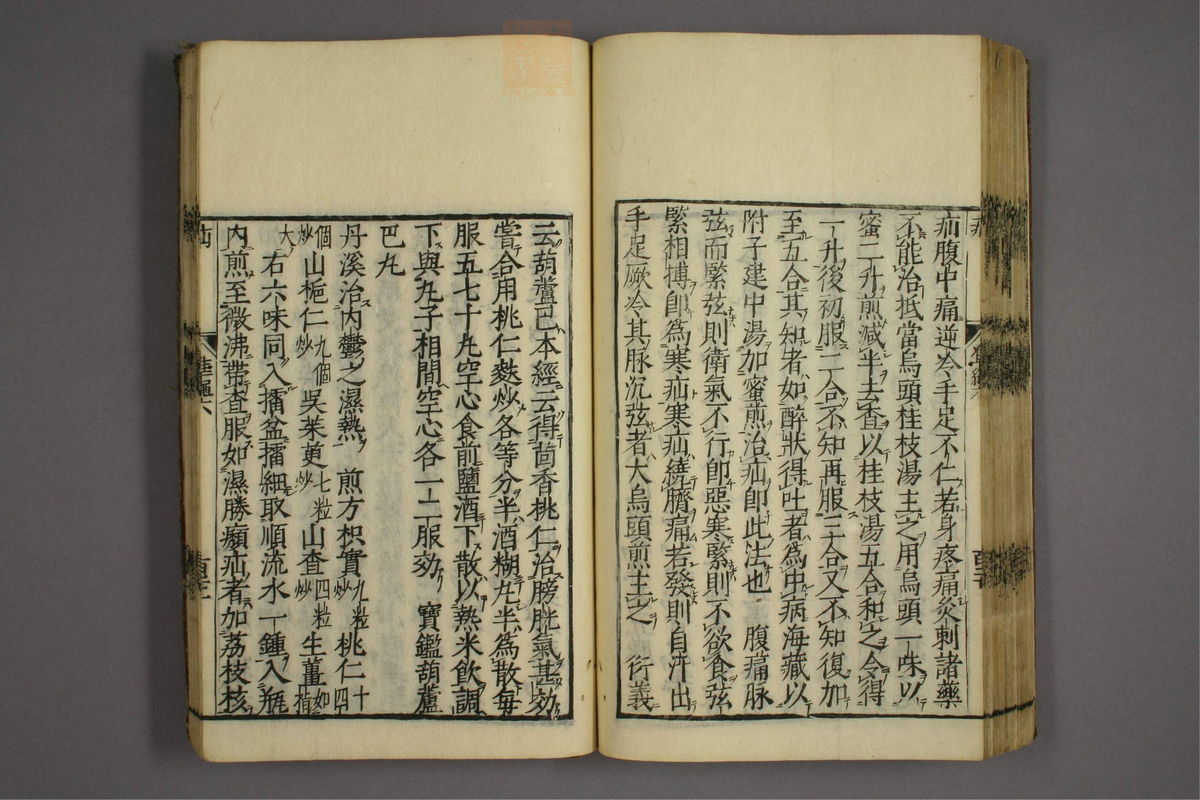 疝腹中痛逆冷手足不仁若身疼痛灸刺諸藥
不能治抵當烏頭桂枝湯主之用烏頭一味以
蜜二升煎減半去査以桂枝湯五合和之令得
一升後初服二合不知再服三合又不知復加
至五合其知者如醉狀得吐者為中病海藏以
附子建中湯加蜜煎治疝即此法也　腹痛脉
弦而緊弦則衛氣不行即惡寒緊則不欲食弦
緊相搏即為寒疝寒疝繞臍痛若發則自汗出
手足厥冷其脉沉弦者大烏頭煎主之　衍義
云葫蘆己本經云得茴香桃仁治膀胱氣甚効
嘗合用桃仁麩炒各等分半酒糊丸半為散每
服五七十丸空心食前鹽酒下散以熱米飲調
下與丸子相間空心各一二服効　寶鑑葫蘆
巴丸
丹溪治内鬱之濕熱　煎方枳實九粒炒　桃仁十四
個炒　山梔仁九個炒　吳茱萸七粒炒　山査四粒炒　生薑如指
大　右六味同入擂盆擂細取順流水一鍾入瓶
内煎至微沸帶査服如濕勝㿗疝者加荔枝核
疝